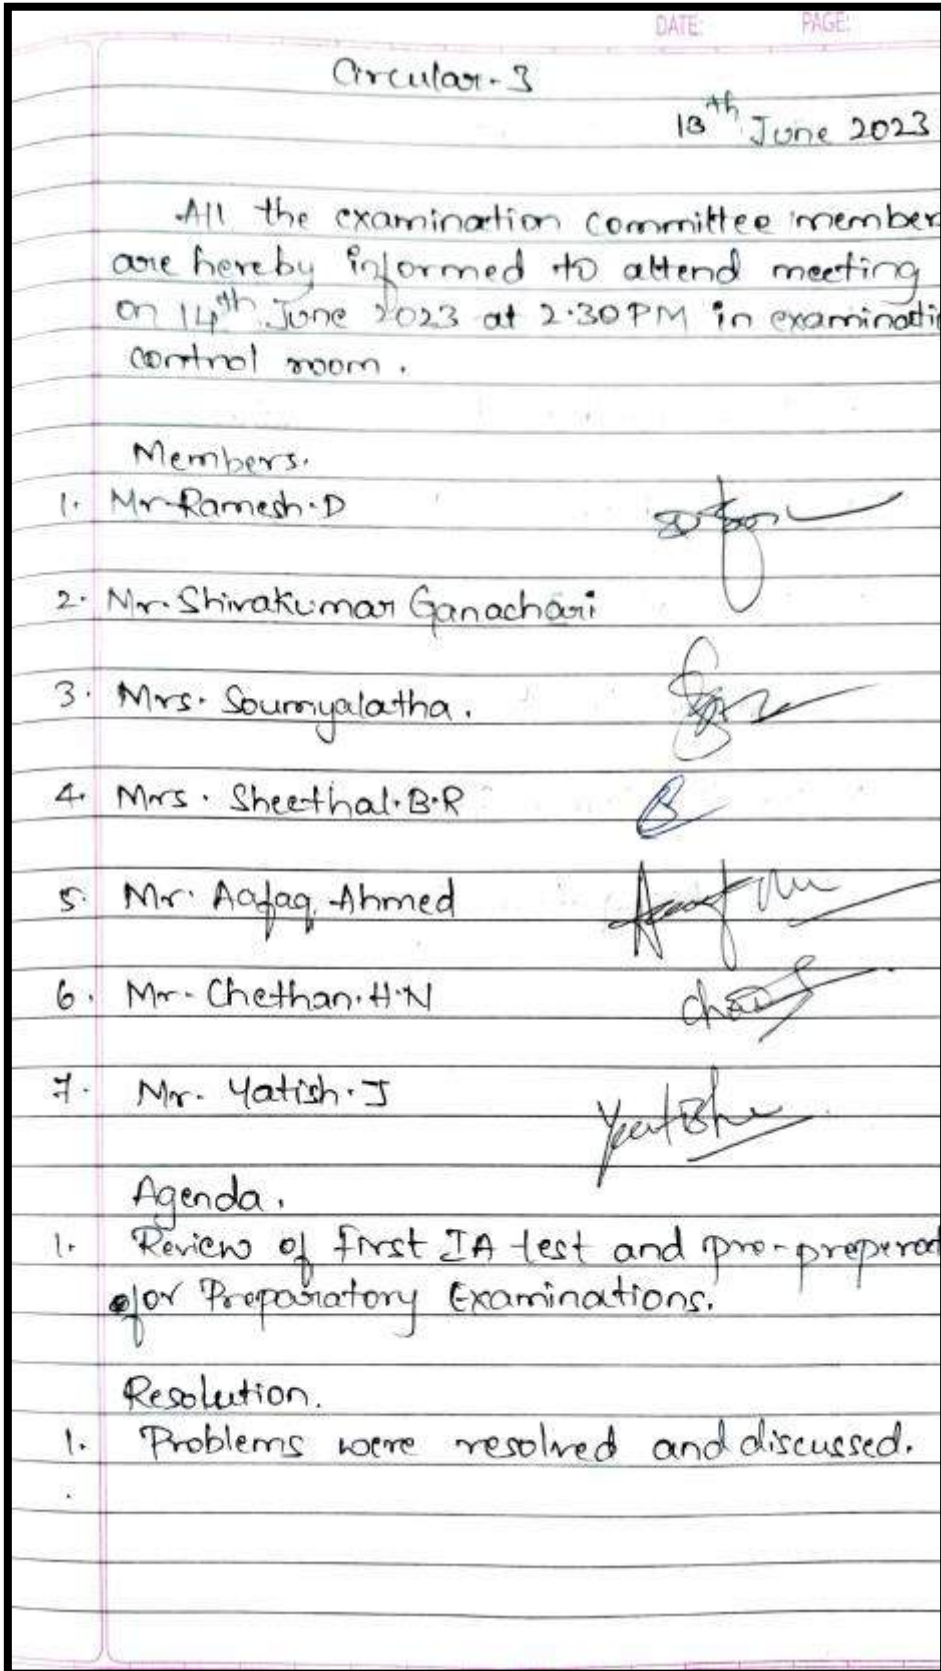 DATE: PAGE:
Circular-3
13th June 2023
All the examination committee member
are hereby informed to attend meeting
on 14th June 2023 at 2.30PM in examinati
control room.
Members.
1. Mr. Ramesh.D
2. Mr. Shivakumar Ganachari
3. Mrs. Soumyalatha.
4. Mrs. Sheethal.B.R
5. Mr. Aafaq Ahmed
6. Mr. Chethan.H.N
7. Mr. Yatish.J
Agenda.
1. Review of first IA test and pre-preperat
for Preparatory Examinations.
Resolution.
1. Problems were resolved and discussed.